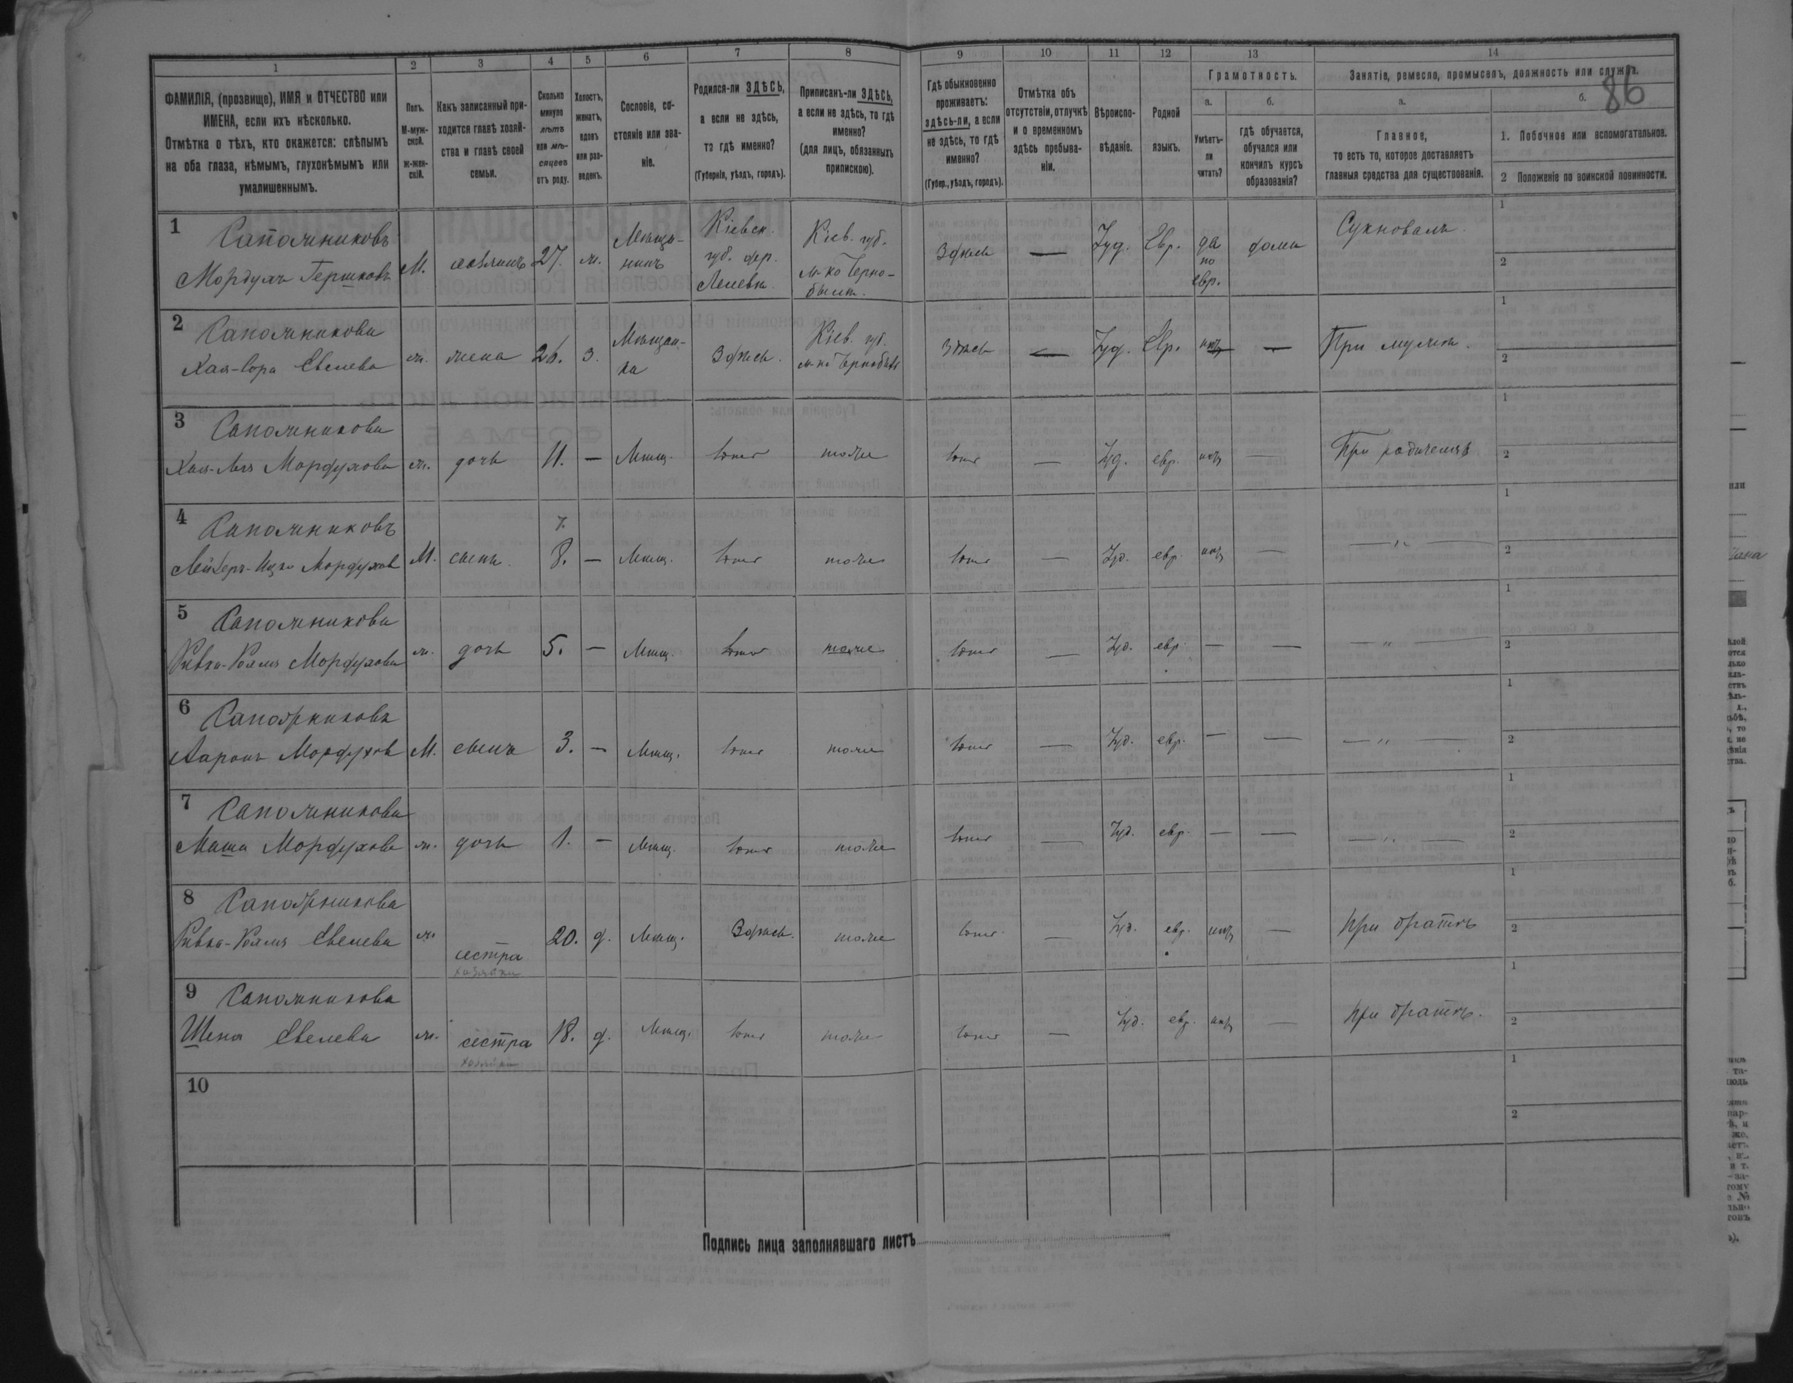 1 2 3 4 5 6 7 8 9 10 11 12 13 14
86
ФАМИЛІЯ, (прозвище), ИМЯ и ОТЧЕСТВО или
ИМЕНА, если ихъ нѣсколько.
Отмѣтка о тѣхъ, кто окажется: слѣпымъ
на оба глаза, нѣмымъ, глухонѣмымъ или
умалишеннымъ.
Полъ.
М-муж-
ской.
ж-жен-
скій.
Какъ записанный при-
ходится главѣ хозяй-
ства и главѣ своей
семьи.
Сколько
минуло
лѣтъ
или мѣ-
сяцевъ
отъ роду.
Холостъ,
женатъ,
вдовъ
или раз-
веденъ.
Сословіе, со-
стояніе или зва-
ніе.
Родился-ли ЗДѢСЬ,
а если не здѣсь,
то гдѣ именно?
(Губернія, уѣздъ, городъ).
Приписанъ-ли ЗДѢСЬ,
а если не здѣсь, то гдѣ
именно?
(для лицъ, обязанныхъ
припискою).
Гдѣ обыкновенно
проживаетъ:
здѣсь-ли, а если
не здѣсь, то гдѣ
именно?
(Губер., уѣздъ, городъ).
Отмѣтка объ
отсутствіи, отлучкѣ
и о временномъ
здѣсь пребыва-
ніи.
Вѣроиспо-
вѣданіе.
Родной
языкъ.
Грамотность.
а.
Умѣетъ-
ли
читать?
б.
гдѣ обучается,
обучался или
кончилъ курсъ
образованія?
Занятіе, ремесло, промыселъ, должность или служба.
а.
Главное,
то есть то, которое доставляетъ
главныя средства для существованія.
б.
1. Побочное или вспомогательное.
2 Положеніе по воинской повинности.
1 Сапожниковъ
Мордухъ Гершковъ М. хозяинъ 27. ж. Мѣща-
нинъ Кіевск.
губ. дер.
Лелевка Кіев. губ.
м-ко Черно-
быль. Здѣсь — Іуд. Евр. да
по
евр. дома Сукновалъ 1
2
2 Сапожникова
Хая-Сора Евелева ж. жена 26. з. Мѣщан-
ка Здѣсь. Кіев. губ.
м-ко Чернобыль Здѣсь — Іуд. Евр. нѣтъ — При мужѣ. 1
2
3 Сапожникова
Мордухова ж. дочь 11. — Мѣщ. тоже тоже тоже — Іуд. евр. нѣтъ — При родителяхъ 1
2
4 Сапожниковъ
Мордухов М. сынъ 7. 8. — Мѣщ. тоже тоже тоже — Іуд. евр. нѣтъ — — " — 1
2
5 Сапожникова
Ривка- Мордухова ж. дочь 5. — Мѣщ. тоже тоже тоже — Іуд. евр. — — — " — 1
2
6 Сапожниковъ
Аронъ Мордухов М. сынъ 3. — Мѣщ. тоже тоже тоже — Іуд. евр. — — — " — 1
2
7 Сапожникова
Маша Мордухова ж. дочь 1. — Мѣщ. тоже тоже тоже — Іуд. евр. — — — " — 1
2
8 Сапожникова
Ривка- Евелева ж. сестра
хозяйки 20. д. Мѣщ. Здѣсь. тоже тоже — Іуд. евр. нѣтъ — При братѣ 1
2
9 Сапожникова
Шена Евелева ж. сестра 18. д. Мѣщ. тоже тоже тоже — Іуд. евр. нѣтъ — При братѣ. 1
2
10 1
2
Подпись лица заполнявшаго листъ